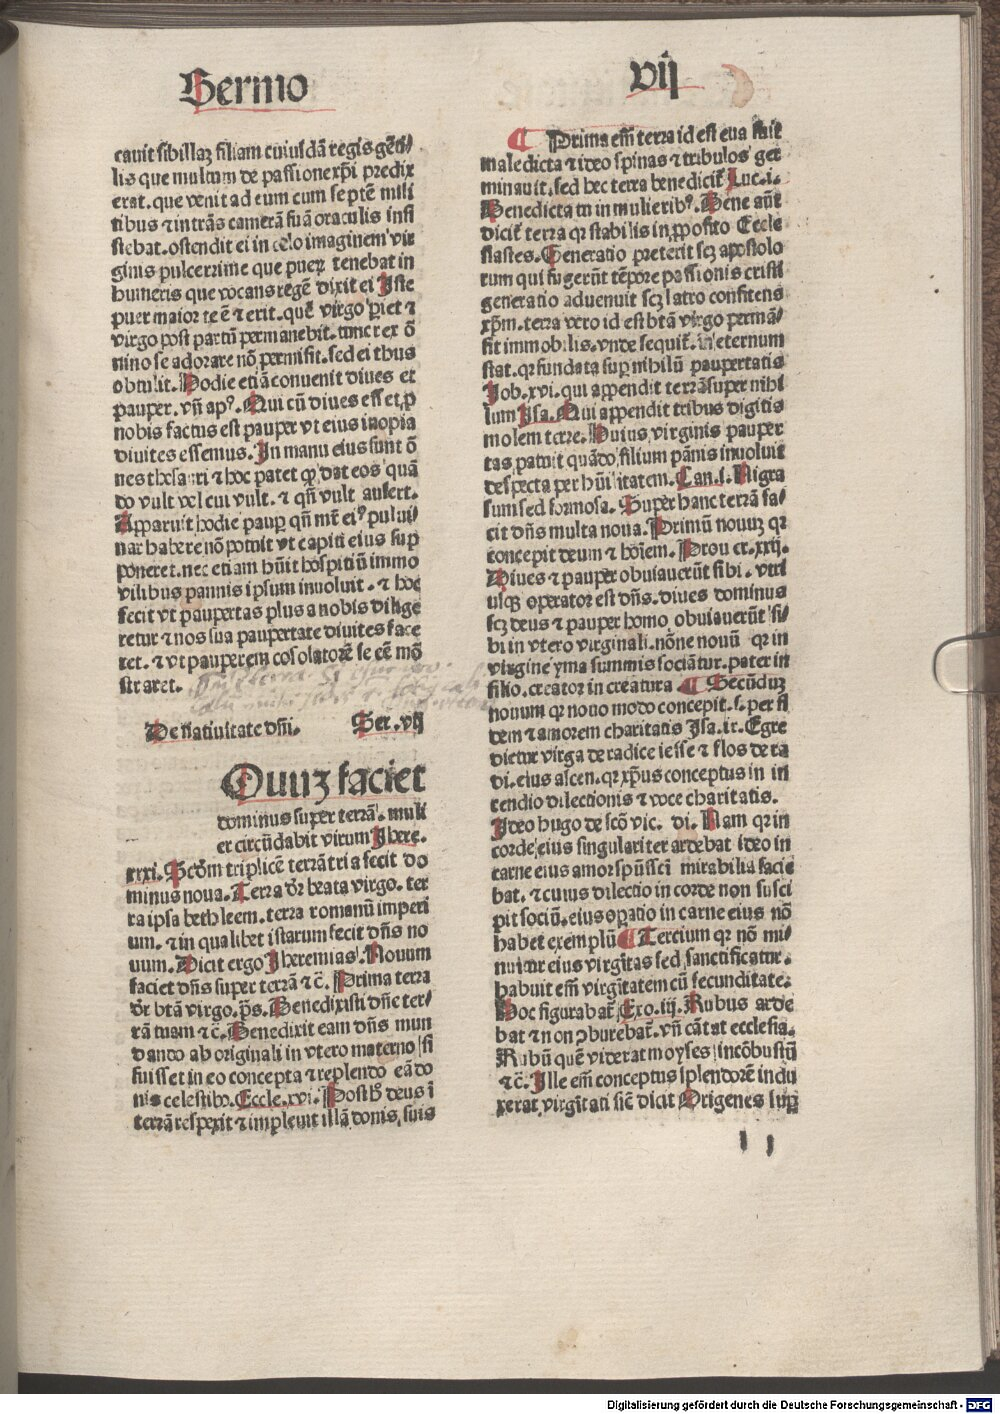 Sermo
vij
cauit sibillaz filiam cuiusdā regis gēti/
lis que multum de passione xp̄i predix
erat. que venit ad eum cum septē mili
tibus ⁊ intrās camerā suā oraculis insi
stebat. ostendit ei in celo imaginem vir
ginis pulcerrime que pueꝝ tenebat in
humeris que vocans regē dixit ei Iste
puer maior te ē ⁊ erit. quē virgo pariet ⁊
virgo post partū permanebit. tunc rex ō
nino se adorare nō permisit. sed ei thus
obtulit. Hodie etiā conuenit diues et
pauper. vn̄ apꝰ. Qui cū diues esset, p
nobis factus est pauper vt eius inopia
diuites essemus. In manu eius sunt ō
nes thesauri ⁊ hoc patet qꝛ dat eos quā
do vult vel cui vult. ⁊ qn̄ vult aufert.
Apparuit hodie pauꝑ qn̄ mr̄ eiꝰ pului/
nar habere nō potuit vt capiti eius suꝑ
poneret. nec etiam hūit hospitiū immo
vilibus pannis ipsum inuoluit. ⁊ hoc
fecit vt paupertas plus a nobis dilige
retur ⁊ nos sua paupertate diuites face
ret. ⁊ vt pauperem cōsolatorē se eē mō
straret.
De natiuitate dn̄i. Ser. vij
Ouuz faciet
dominus super terrā. muli
er circūdabit virum Ihere.
xxxi. Scd̄m triplicē terrā tria fecit do
minus noua. Terra dr̄ beata virgo. ter
ra ipsa bethleem. terra romanū imperi
um. ⁊ in qualibet istarum fecit dn̄s no
uum. Dicit ergo Iheremias. Nouum
faciet dn̄s super terrā ⁊ c̄. Prima terra
dr̄ btā virgo. p̄s. Benedixisti dn̄e ter/
rā tuam ⁊ c̄. Benedixit eam dn̄s mun
dando ab originali in vtero materno si
fuisset in eo concepta ⁊ replendo eā do
nis celestibꝰ. Eccle. xvi. Post h̄ deus ī
terrā respexit ⁊ impleuit illā donis, suis
¶ Prima em̄ terra id est eua fuit
maledicta ⁊ ideo spinas ⁊ tribulos ger
minauit. sed hec terra benedicit̄ Luc. i.
Benedicta tu in mulieribꝰ. Bene aūt
dicit̄ terra qꝛ stabilis in ꝓposito Eccle
siastes. Generatio preterit scꝫ apostolo
rum qui fugerūt tēpore passionis cristi
generatio aduenuit scꝫ latro confitens
xp̄m. terra vero id est btā virgo permā/
sit immobilis. vnde sequit̄. in eternum
stat. qꝛ fundata suꝑ nihilū paupertatis
Job. xvi. qui appendit terrā super nihi
lum Isa. Qui appendit tribus digitis
molem terre. Huius virginis pauper
tas patuit quādo filium pānis inuoluit
despecta per hūilitatem. Can. i. Nigra
sum sed formosa. Super hanc terrā fa/
cit dn̄s multa noua. Primū nouuz qꝛ
concepit deum ⁊ hoīem. Prouer. xxij.
Diues ⁊ pauper obuiauerūt sibi. vtri
usqꝫ operator est dn̄s. diues dominus
scꝫ deus ⁊ pauper homo obuiauerūt si/
bi in vtero virginali. nōne nouū qꝛ in
virgine yma summis sociātur. pater in
filio. creator in creatura ¶ Secūduz
nouum qꝛ nouo modo concepit. s. per fi
dem ⁊ amorem charitatis Isa. ix. Egre
dietur virga de radice iesse ⁊ flos de ra
di. eius ascen. qꝛ xp̄us conceptus in in
cendio dilectionis ⁊ voce charitatis.
Ideo hugo de scō vic. di. Nam qꝛ in
corde eius singulariter ardebat ideo in
carne eius amor spūssc̄i mirabilia facie
bat. ⁊ cuius dilectio in corde non susci
pit sociū. eius oꝑatio in carne eius nō
habet exemplū ¶ Tercium qꝛ nō mi/
nuitur eius virgītas sed sanctificatur.
habuit em̄ virgītatem cū fecunditate.
Hoc figurabat̄ Exo. iij. Rubus arde
bat ⁊ non ꝯburebat̄. vn̄ cātat ecclesia.
Rubū quē viderat moyses incōbustū
⁊ c̄. Ille em̄ conceptus splendorē indu
xerat virgītati sic̄ dicit Origenes suꝑ